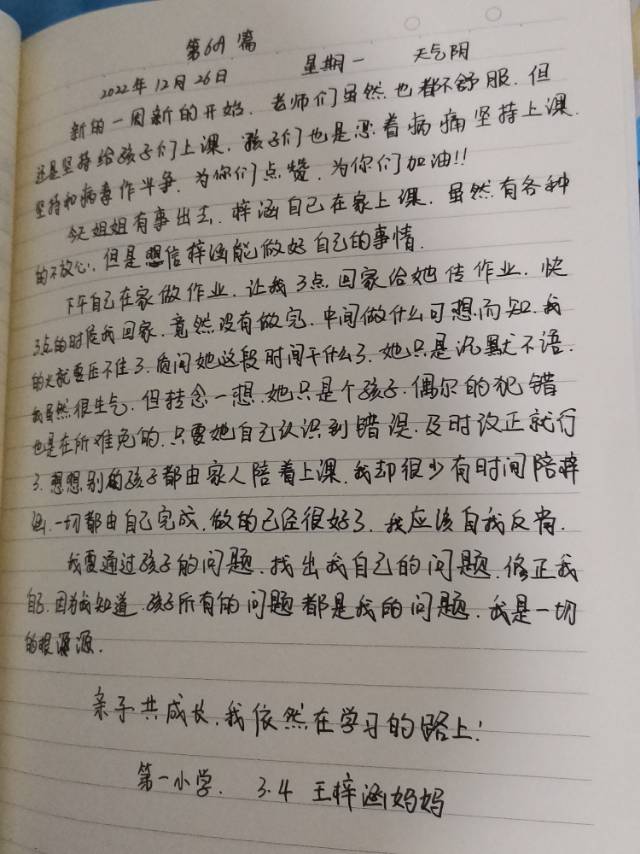 第609篇
2022年12月26日 星期一 天气阴
新的一周新的开始. 老师们虽然也都不舒服. 但
还是坚持给孩子们上课. 孩子们也是忍着病痛坚持上课.
坚持和病毒作斗争. 为你们点赞. 为你们加油!!
今天姐姐有事出去. 梓涵自己在家上课. 虽然有各种
的不放心. 但是想信梓涵能做好自己的事情.
下午自己在家做作业. 让我3点回家给她传作业. 快
3点的时候我回家. 竟然没有做完. 中间做什么可想而知. 我
的火就要压不住了. 质问她这段时间干什么了. 她只是沉默不语.
我虽然很生气. 但转念一想. 她只是个孩子. 偶尔的犯错
也是在所难免的. 只要她自己认识到错误. 及时改正就行
了. 想想别的孩子都由家人陪着上课. 我却很少有时间陪梓
涵. 一切都由自己完成. 做的已经很好了. 我应该自我反省.
我要通过孩子的问题. 找出我自己的问题. 修正我
自己. 因为我知道. 孩子所有的问题都是我的问题. 我是一切
的根源.
亲子共成长. 我依然在学习的路上!
第一小学. 3.4 王梓涵妈妈